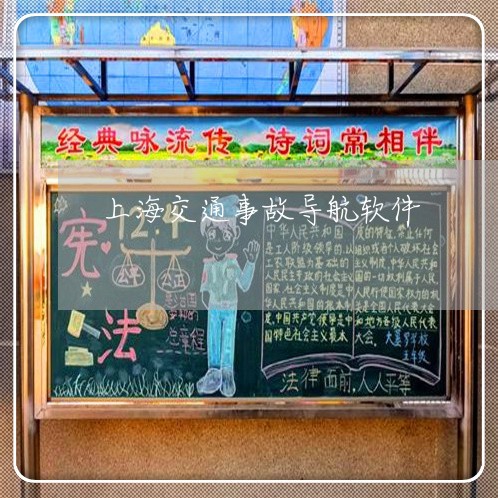 经典咏流传 诗词常相伴
上海交通事故导航软件
12.4
宪法
公平
公正
总章程
中华人民共和国
是工人阶级领导的,以
工农联盟为基础的
人民民主专政的社会主义
国家,社会主义制度是中
华人民共和国的根本制
度,中国共产党领导是中
国特色社会主义最本
质的特征,禁止任何
组织或者个人破坏社会
主义制度,中华人民共和
国的一切权利属于人民,
人民行使国家权力的机
关是全国人民代表大会
和地方各级人民代表
大会。
五年级
法律面前,人人平等